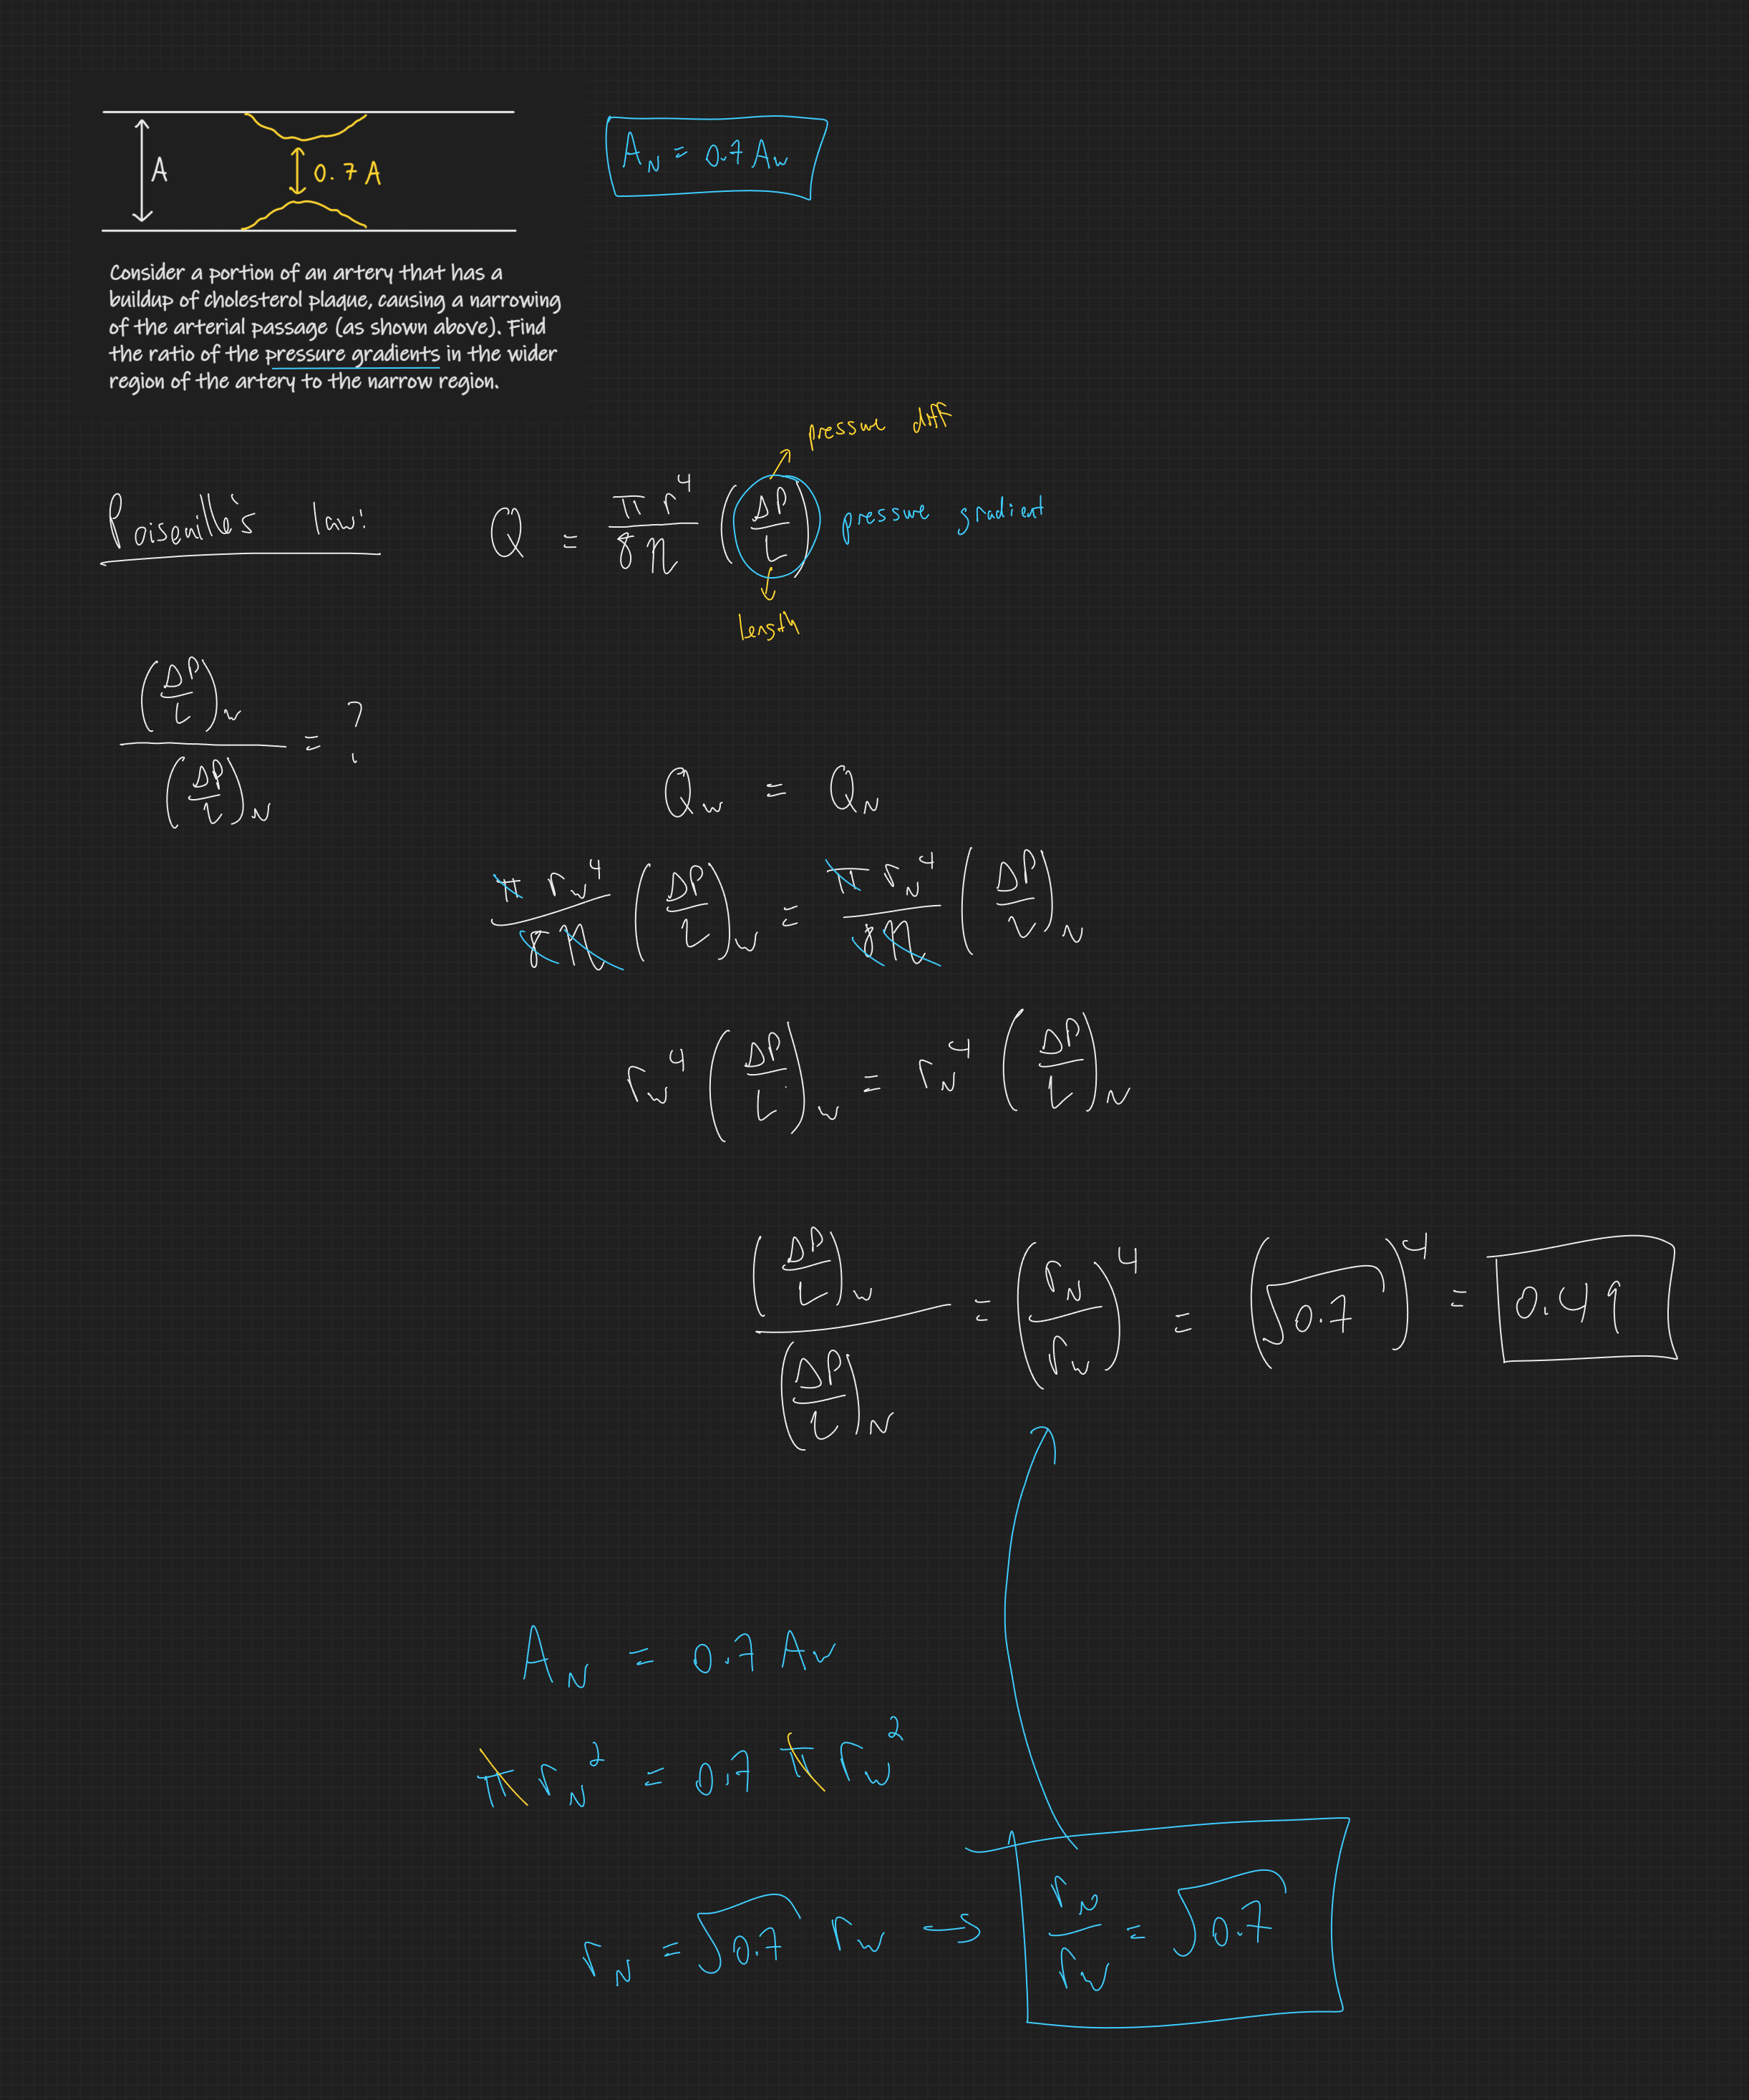 A
0.7 A
A_N = 0.7 A_w
Consider a portion of an artery that has a
buildup of cholesterol plaque, causing a narrowing
of the arterial passage (as shown above). Find
the ratio of the pressure gradients in the wider
region of the artery to the narrow region.
pressure diff
Poiseuille's law: Q = π r^4 / 8 η (ΔP / L) pressure gradient
length
(ΔP / L)_w / (ΔP / L)_N = ?
Q_w = Q_N
π r_w^4 / 8 η (ΔP / L)_w = π r_N^4 / 8 η (ΔP / L)_N
r_w^4 (ΔP / L)_w = r_N^4 (ΔP / L)_N
(ΔP / L)_w / (ΔP / L)_N = (r_N / r_w)^4 = (√0.7)^4 = 0.49
A_N = 0.7 A_w
π r_N^2 = 0.7 π r_w^2
r_N = √0.7 r_w → r_N / r_w = √0.7